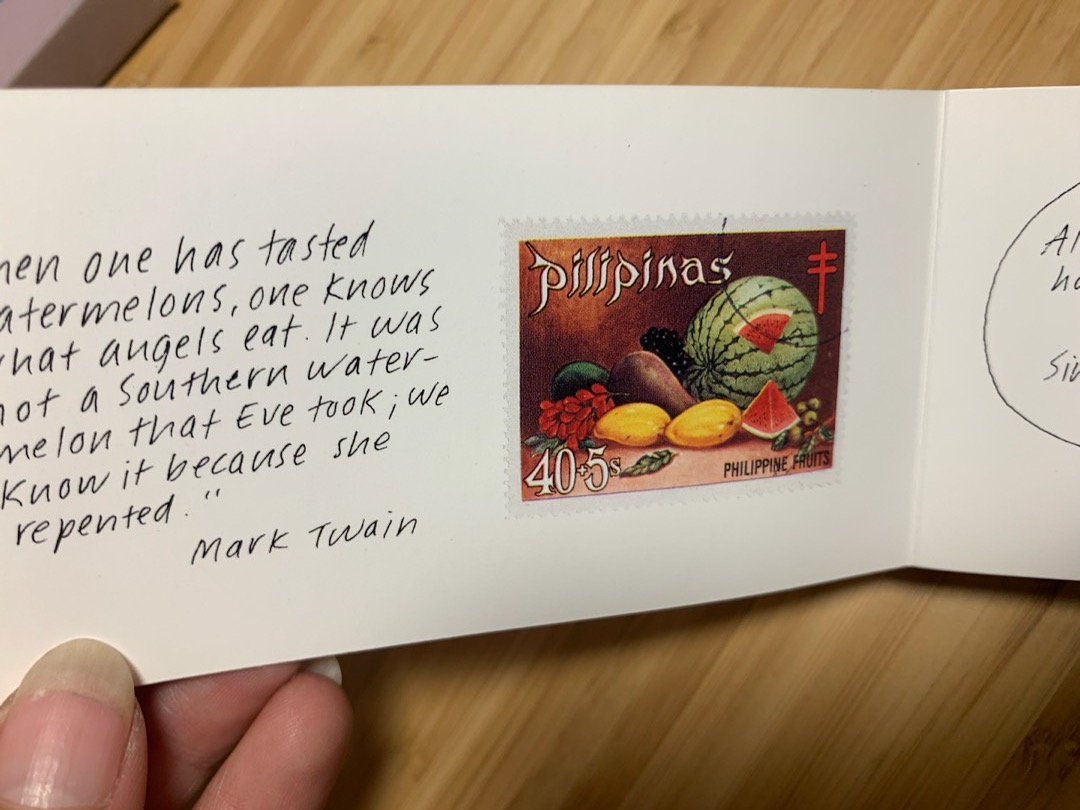 hen one has tasted
atermelons, one knows
hat angels eat. It was
not a Southern water-
melon that Eve took; we
know it because she
repented."
Mark Twain
Pilipinas
40+5s
PHILIPPINE FRUITS